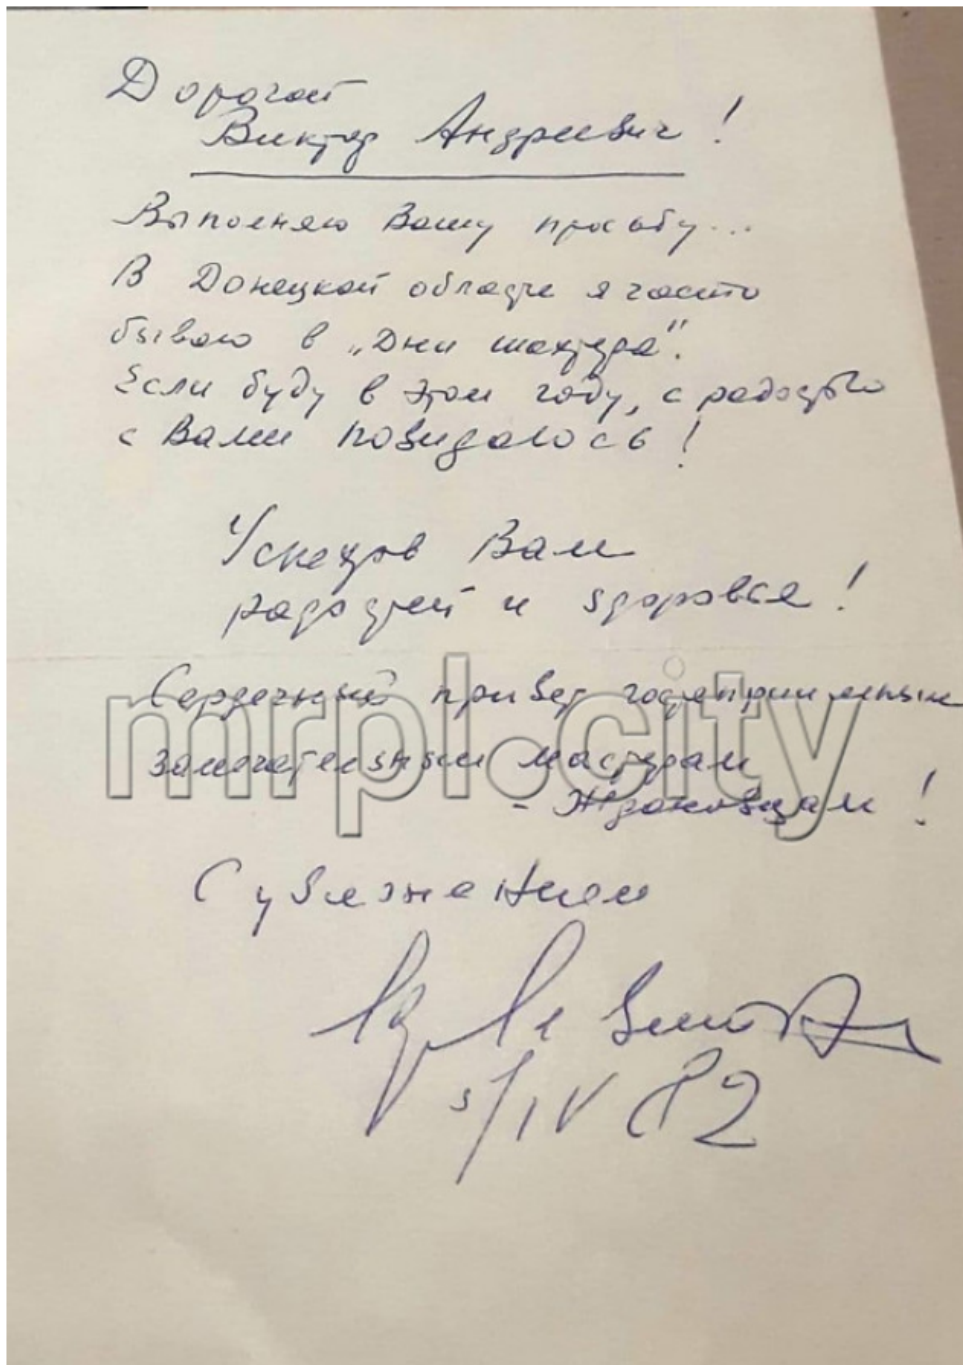 Дорогой
Виктор Андреевич!
Выполняю Вашу просьбу...
В Донецкой области я часто
бываю в „Дни шахтера".
Если буду в этом году, с радостью
с Вами повидаюсь!
Успехов Вам
радостей и здоровья!
Сердечный привет гостеприимным
замечательным мастерам
- Ждановцам!
С уважением
5/IV 82
mrpl.city